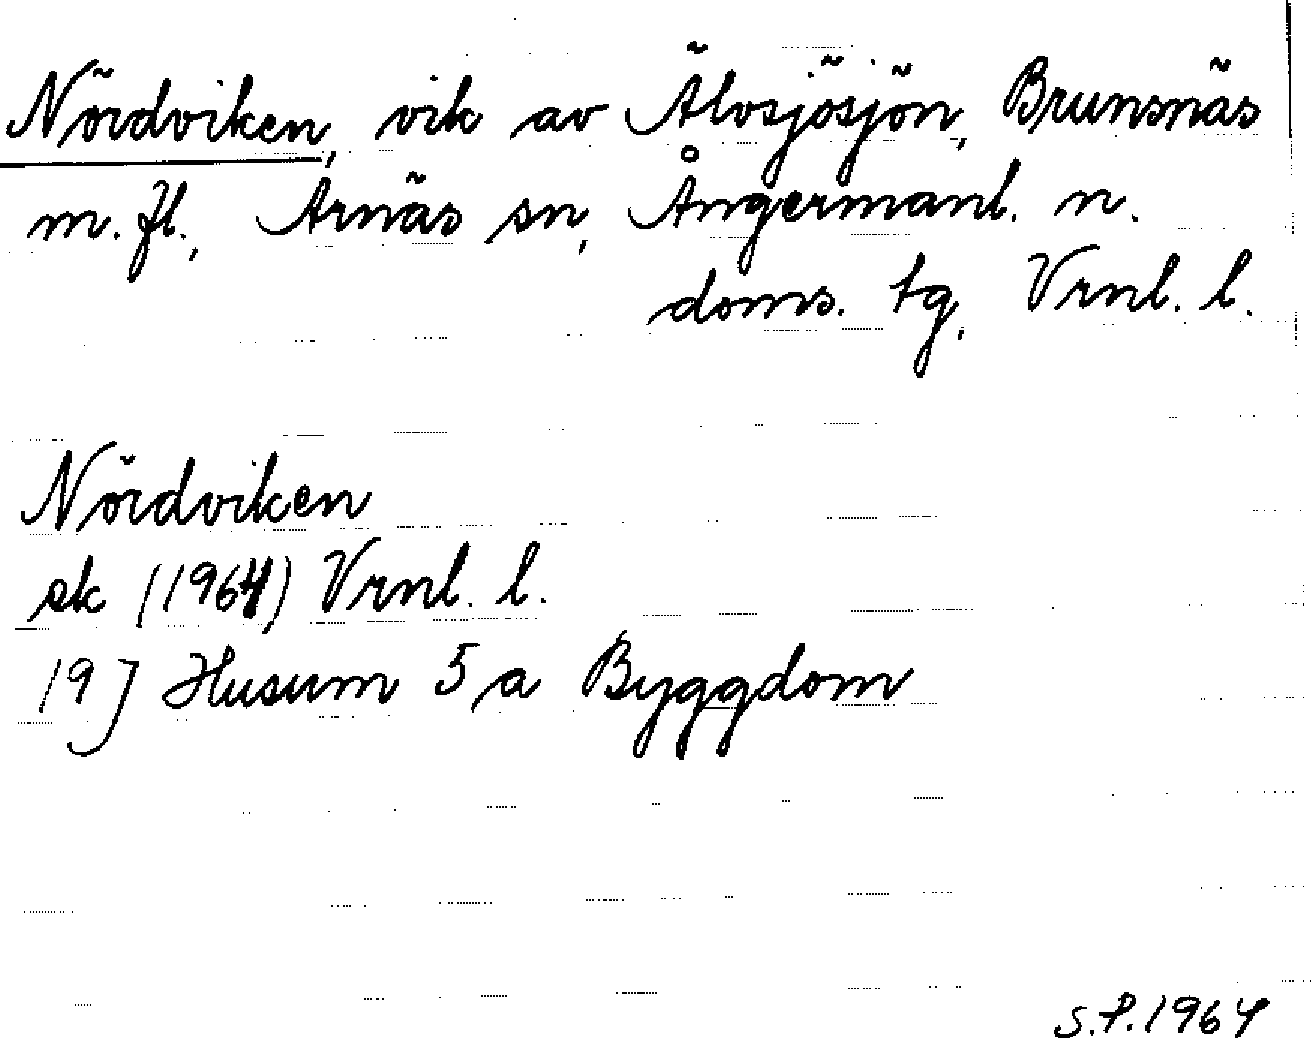 Nördviken, vik av Älvsjösjön, Brunsnäs
m. fl., Arnäs sn, Ångermanl. n.
doms. tg, Vrnl. l.
Nördviken
ek (1964) Vrnl. l.
19 J Husum 5 a Byggdom
S.P. 1964